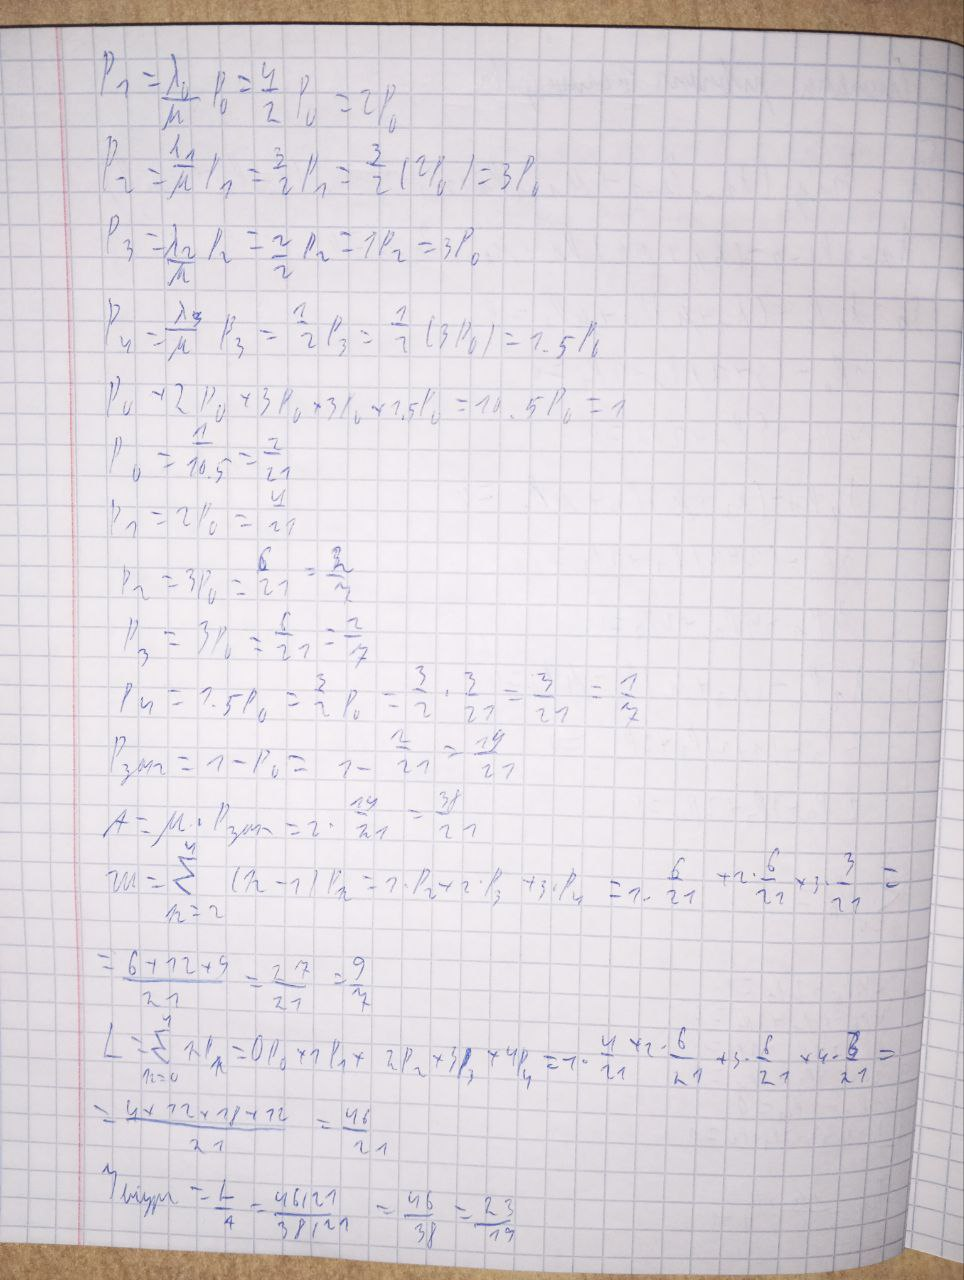 P₁ = λ₀/μ P₀ = 4/2 P₀ = 2P₀
P₂ = λ₁/μ P₁ = 3/2 P₁ = 3/2 (2P₀) = 3P₀
P₃ = λ₂/μ P₂ = 2/2 P₂ = 1P₂ = 3P₀
P₄ = λ₃/μ P₃ = 1/2 P₃ = 1/2 (3P₀) = 1.5P₀
P₀ + 2P₀ + 3P₀ + 3P₀ + 1.5P₀ = 10.5P₀ = 1
P₀ = 1/10.5 = 2/21
P₁ = 2P₀ = 4/21
P₂ = 3P₀ = 6/21 = 2/7
P₃ = 3P₀ = 6/21 = 2/7
P₄ = 1.5P₀ = 3/2 P₀ = 3/2 · 3/21 = 3/21 = 1/7
= 1 - P₀ = 1 - 2/21 = 19/21
A = μ · = 2 · 19/21 = 38/21
m = ∑⁴ₖ₌₂ (k-1) Pₖ = 1·P₂ + 2·P₃ + 3·P₄ = 1·6/21 + 2·6/21 + 3·3/21 =
= (6+12+9)/21 = 27/21 = 9/7
L = ∑⁴ₖ₌₀ kPₖ = 0P₀ + 1P₁ + 2P₂ + 3P₃ + 4P₄ = 1·4/21 + 2·6/21 + 3·6/21 + 4·3/21 =
= (4+12+18+12)/21 = 46/21
= L/A = (46/21)/(38/21) = 46/38 = 23/19